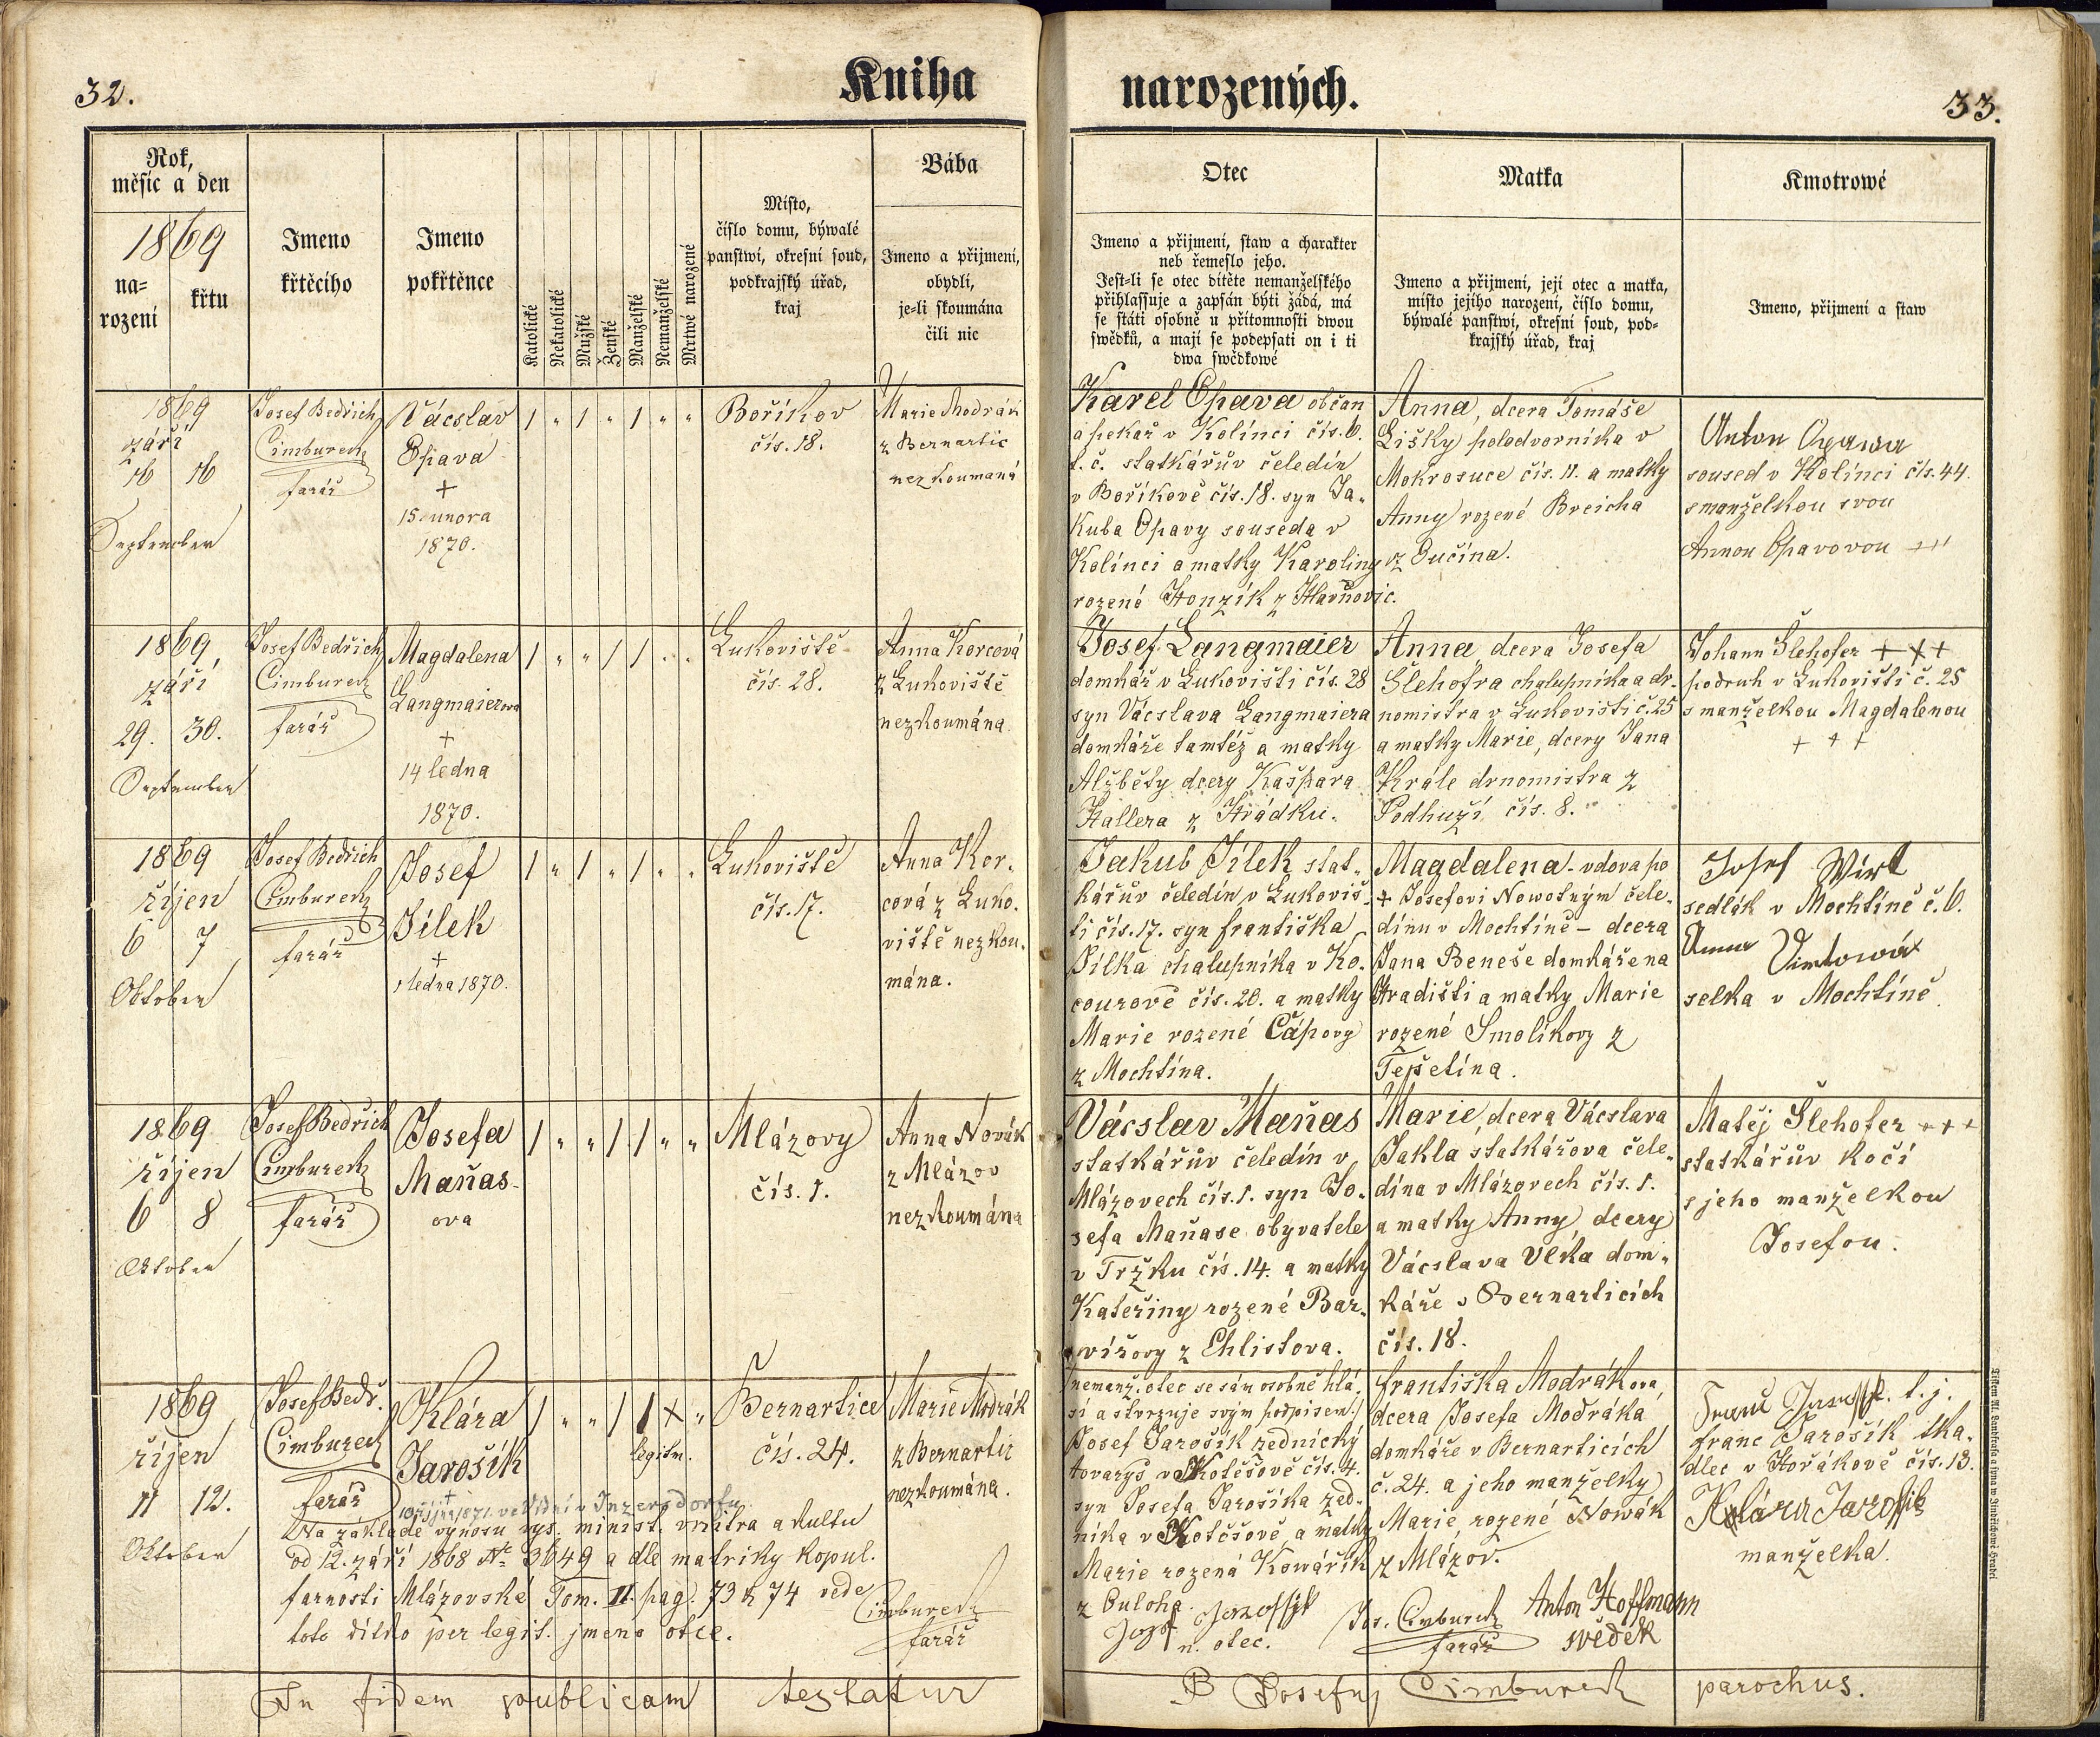 32.
Kniha
narozených.
33.
Rok,
měsíc a den
1869
na=
rození
křtu
Jmeno
křtěcího
Jmeno
pokřtěnce
Katolické
Nekatolické
Mužské
Ženské
Manželské
Nemanželské
Mrtwé narozené
Místo,
číslo domu, býwalé
panstwí, okresní soud,
podkrajský úřad,
kraj
Bába
Jmeno a přijmení,
obydlí,
je=li skoumána
čili nic
Otec
Jmeno a přijmení, staw a charakter
neb řemeslo jeho.
Jest=li se otec dítěte nemanželského
přihlassuje a zapsán býti žádá, má
se státi osobně u přítomnosti dwou
swědků, a mají se podepsati on i ti
dwa swědkowé
Matka
Jmeno a přijmení, její otec a matka,
místo jejího narození, číslo domu,
býwalé panstwí, okresní soud, pod=
krajský úřad, kraj
Kmotrowé
Jmeno, přijmení a staw
1869
září
16 16
September
Josef Bedřich
Cimbureck
farář
Vácslav
Opava
+
15. unora
1870.
1 " 1 " 1 " "
Boříkov
čís. 18.
Marie Modrák
z Bernartic
nezkoumaná
Karel Opava občan
a pekař v Kolínci čís. 6.
t. č. statkářův čeledín
v Boříkově čís. 18. syn Ja-
kuba Opavy souseda v
Kolínci a matky Karoliny
rozené Honzík z Hlavňovic.
Anna, dcera Tomáše
Lišky polodvorníka v
Mokrosuce čís. 11. a matky
Anny rozené Breicha
z Bučína.
Anton Opawa
soused v Kolínci čís. 44.
s manželkou svou
Annou Opavovou +++
1869
září
29. 30.
September
Josef Bedřich
Cimbureck
farář
Magdalena
Langmaierova
+
14 ledna
1870.
1 " " 1 1 " "
Lukoviště
čís. 28.
Anna Korcová
z Lukoviště
nezkoumána.
Josef Langmaier
domkář v Lukovišti čís. 28
syn Vácslava Langmaiera
domkáře tamtéž a matky
Alžběty dcery Kašpara
Hallera z Hrádku.
Anna dcera Josefa
Šlehofra chalupníka a dr-
nomistra v Lukovišti č. 25
a matky Marie, dcery Jana
Krále drnomistra z
Podhuží čís. 8.
Johann Šlehofer +++
podruh v Lukovišti č. 25
s manželkou Magdalenou
+ + +
1869
říjen
6 7
Oktober
Josef Bedřich
Cimbureck
farář
Josef
Jílek
+
ledna 1870.
1 " 1 " 1 " "
Lukoviště
čís. 17.
Anna Kor-
cová z Luko-
viště nezkou-
mána.
Jakub Jílek stat-
kářův čeledín v Lukoviš-
ti čís. 17. syn františka
Jílka chalupníka v Ko-
courově čís. 20. a matky
Marie rozené Čápovy
z Mochtína.
Magdalena - vdova po
+ Josefovi Nowotným čele-
dínu v Mochtíně - dcera
Jana Beneše domkáře na
Hradišti a matky Marie
rozené Smolíkovy z
Tešetína.
Josef Wirt
sedlák v Mochtíně č. 6.
Anna Virtowá
selka v Mochtíně.
1869
říjen
6 8
Oktober
Josef Bedřich
Cimbureck
farář
Josefa
Maňas-
ova
1 " " 1 1 " "
Mlázovy
čís. 1.
Anna Novák
z Mlázov
nezkoumána
Vácslav Maňas
statkářův čeledín v
Mlázovech čís. 1. syn Jo-
sefa Maňase obyvatele
v Tržku čís. 14. a matky
Kateřiny rozené Bar-
vířovy z Chlistova.
Marie, dcera Vácslava
Jakla statkářova čele-
dína v Mlázovech čís. 1.
a matky Anny dcery
Vácslava Vlka dom-
káře v Bernarticích
čís. 18.
Matěj Šlehofer +++
statkářův kočí
s jeho manželkou
Josefou.
1869
říjen
11 12.
Oktober
Josef Bedř.
Cimbureck
farář
Klára
Jarošík
+
1871. ve Vídni v Inzersdorfu
1 " " 1 1 X "
legitm.
Bernartice
čís. 24.
Marie Modrák
z Bernartic
nezkoumána.
Na základě výnosu vys. minist. vnitra a kultu
od 12. září 1868 No 3649 a dle matriky kopul.
farnosti Mlázovské Tom. II. pag. 73 & 74 vede
toto dítko per legit. jmeno otce.
Cimbureck
farář
/nemanž. otec se sám osobně hlá-
sí a stvrzuje svým podpisem:/
Josef Jarošík zednický
tovaryš v Kotěšově čís. 4.
syn Josefa Jarošíka zed-
níka v Kotěšově a matky
Marie rozená Kowářík
z Buloha.
Josef Jarossyk
n. otec.
františka Modrákova,
dcera Josefa Modráka
domkáře v Bernarticích
č. 24. a jeho manželky
Marie rozené Nowák
z Mlázov.
Jos. Cimbureck
farář
Anton Hoffmann
svědek
Franc Jarossyk t. j.
franc Jarošík tka-
dlec v Hořákově čís. 13.
Klára Jarossik
manželka.
In fidem publicam testatur
P Josefus Cimbureck parochus.